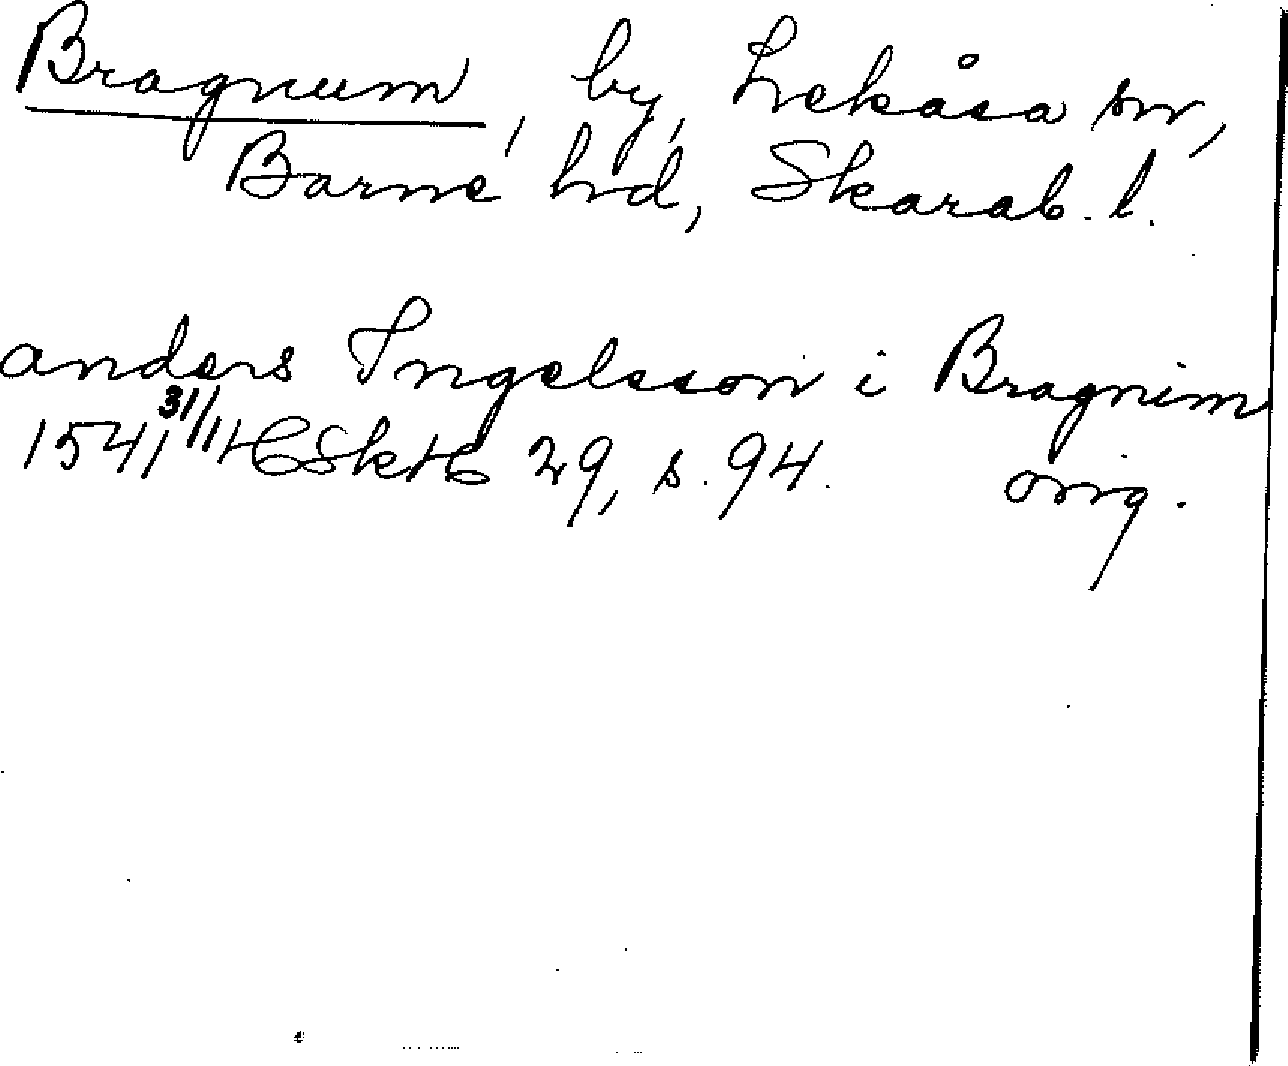 Bragnum, by, Lekåsa sn,
Barne hd, Skarab. l.
anders Ingelsson i Bragnim
1541 31/11 HSkH 29, s. 94. orig.